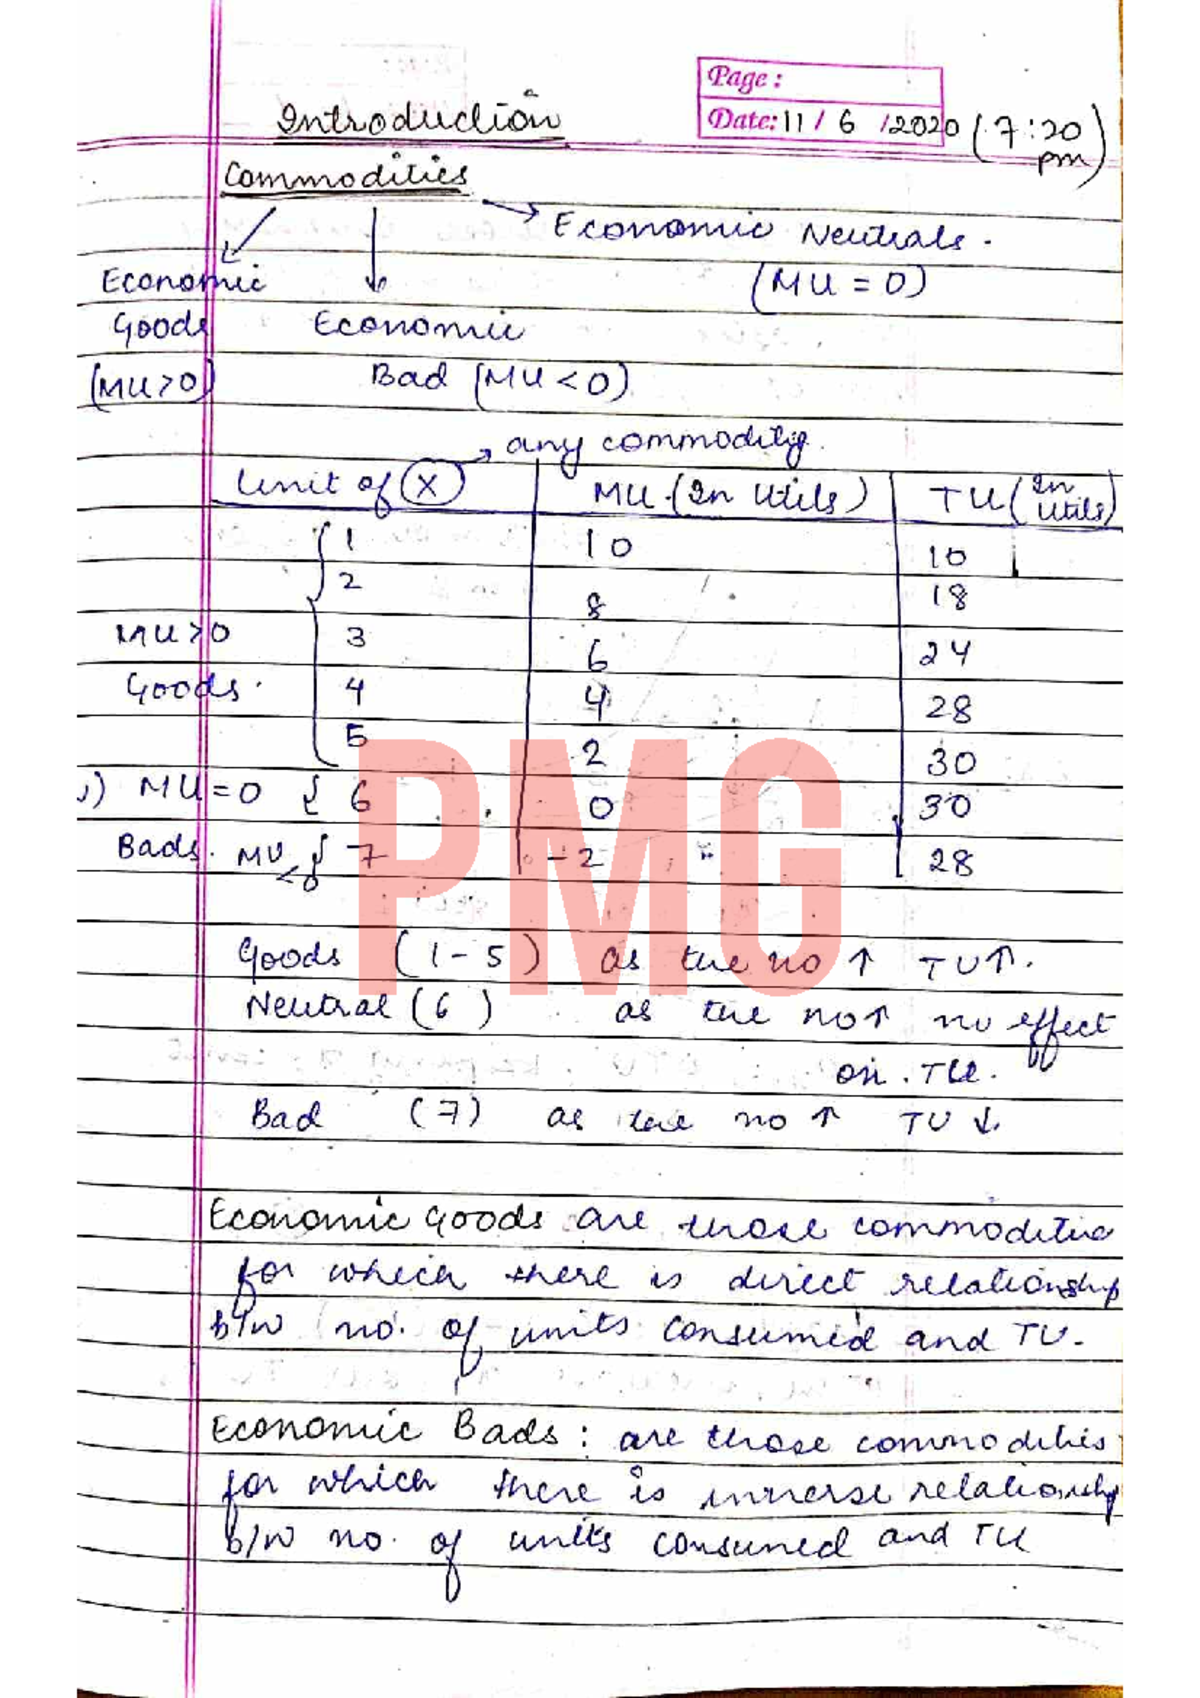 Page :
Introduction
Date: 11 / 6 / 2020 (7:20 pm)
Commodities
Economic Neutrals.
(MU = 0)
Economic
Goods
(MU>0)
Economic
Bad (MU < 0)
any commodity.
Unit of X MU (In Utils) TU (In Utils)
1 10 10
2 8 18
3 6 24
4 4 28
5 2 30
6 0 30
7 -2 28
MU>0
Goods.
MU = 0
Bads. MU <0
PMG
Goods (1-5) as the no ↑ TU↑.
Neutral (6) as the no↑ no effect
on . TU.
Bad (7) as the no ↑ TU ↓.
Economic Goods are those commodities
for which there is direct relationship
b/w no. of units consumed and TU.
Economic Bads : are those commodities
for which there is inverse relationship
b/w no. of units consumed and TU